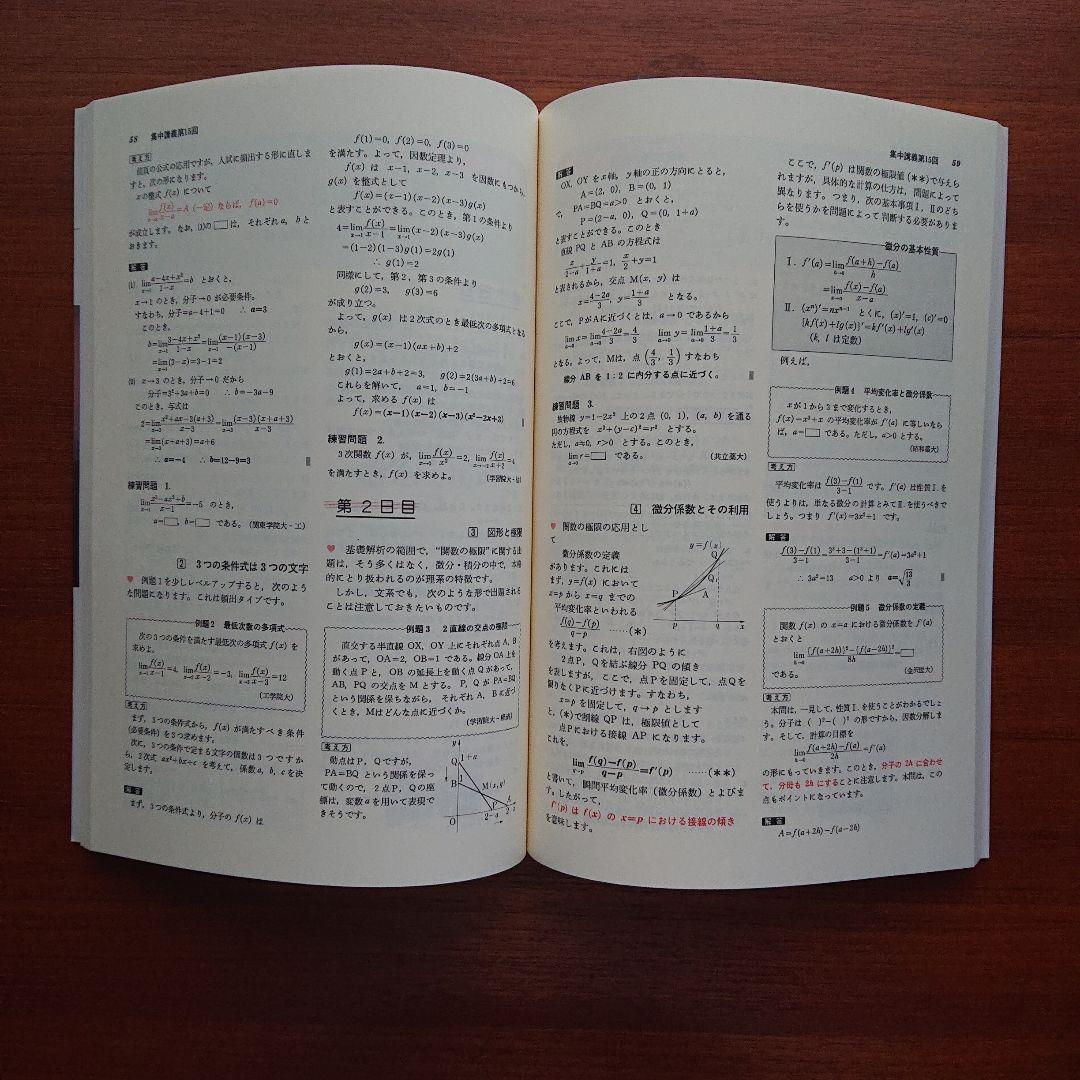 58 集中講義第15回
考え方
値直の公式の応用ですが、入試に頻出する形に直しま
すと、次の形になります。
xの整式 f(x) について
lim_{x→a} f(x)/(x-a)=A(一定)ならば、f(a)=0
が成立します。なお、(1)の□は、それぞれ a, b と
おきます。
解答
(1) lim_{x→1} (a-4x+x²)/(1-x)=b とおくと、
x→1 のとき、分子→0 が必要条件。
すなわち、分子=a-4+1=0 ∴ a=3
このとき、
b=lim_{x→1} (3-4x+x²)/(1-x)=lim_{x→1} (x-1)(x-3)/-(x-1)
=lim_{x→1}(3-x)=3-1=2
(2) x→3 のとき、分子→0 だから
分子=3²+3a+b=0 ∴ b=-3a-9
このとき、与式は
2=lim_{x→3} (x²+ax-3(a+3))/(x-3)=lim_{x→3} (x-3)(x+a+3)/(x-3)
=lim_{x→3}(x+a+3)=a+6
∴ a=-4 ∴ b=12-9=3
練習問題 1.
lim_{x→1} (x²-ax²+b)/(x-1)=-5 のとき、
a=□, b=□ である。(関東学院大-工)
2 3つの条件式は3つの文字
♥ 例題1を少しレベルアップすると、次のよう
な問題になります。これは頻出タイプです。
例題2 最低次数の多項式
次の3つの条件を満たす最低次の多項式 f(x) を
求めよ。
lim_{x→1} f(x)/(x-1)=4, lim_{x→2} f(x)/(x-2)=-3, lim_{x→3} f(x)/(x-3)=12
(工学院大)
考え方
まず、3つの条件式から、f(x) が満たすべき条件
(必要条件)を3つ求めます。
次に、3つの条件で定まる文字の個数は3つですか
ら、2次式 ax²+bx+c を考えて、係数 a, b, c を決
定します。
解答
まず、3つの条件式より、分子の f(x) は
f(1)=0, f(2)=0, f(3)=0
を満たす。よって、因数定理より、
f(x) は x-1, x-2, x-3 を因数にもつから、
g(x) を整式として
f(x)=(x-1)(x-2)(x-3)g(x)
と表すことができる。このとき、第1の条件より
4=lim_{x→1} f(x)/(x-1)=lim_{x→1}(x-2)(x-3)g(x)
=(1-2)(1-3)g(1)=2g(1)
∴ g(1)=2
同様にして、第2、第3の条件より
g(2)=3, g(3)=6
が成り立つ。
よって、g(x) は2次式のとき最低次の多項式となる
から、
g(x)=(x-1)(ax+b)+2
とおくと、
g(1)=2a+b+2=3, g(2)=2(3a+b)+2=6
これらを解いて、 a=1, b=-1
よって、求める f(x) は
f(x)=(x-1)(x-2)(x-3)(x²-2x+3)
練習問題 2.
3次関数 f(x) が、lim_{x→0} f(x)/x=2, lim_{x→-2} f(x)/(x+2)=4
を満たすとき、f(x) を求めよ。 (学習院大-
第2日目
3 図形と極限
♥ 基礎解析の範囲で、“関数の極限”に関する出
題は、そう多くはなく、微分・積分の中で、本格
的にとり扱われるのが理系の特徴です。
しかし、文系でも、次のような形で出題される
ことは注意しておきたいものです。
例題3 2直線の交点の極限
直交する半直線 OX, OY 上にそれぞれ点 A, B
があって、OA=2, OB=1 である。線分 OA 上を
動く点 P と、OB の延長上を動く点 Q があって、
AB, PQ の交点を M とする。P, Q が PA=BQ
という関係を保ちながら、それぞれ A, B に近づ
くとき、M はどんな点に近づくか。
(学習院大-経済)
考え方
動点は P, Q ですが、
PA=BQ という関係を保っ
て動くので、2点 P, Q の座
標は、変数 a を用いて表現で
きそうです。
y
Q 1+a
B 1
M(x, y)
P A
O 2-a 2 x
集中講義第15回 59
解答
OX, OY を x軸、y軸の正の方向にとると、
A=(2, 0), B=(0, 1)
で、PA=BQ=a>0 とおくと、
P=(2-a, 0), Q=(0, 1+a)
と表すことができる。このとき
直線 PQ と AB の方程式は
x/(2-a)+y/(1+a)=1, x/2+y=1
と表されるから、交点 M(x, y) は
x=(4-2a)/3, y=(1+a)/3 となる。
ここで、P が A に近づくとは、a→0 であるから
lim_{a→0} x=lim_{a→0} (4-2a)/3=4/3 lim_{a→0} y=lim_{a→0} (1+a)/3=1/3
となる。よって、M は、点 (4/3, 1/3) すなわち
線分 AB を 1:2 に内分する点に近づく。
練習問題 3.
放物線 y=1-2x² 上の2点 (0, 1), (a, b) を通る
円の方程式を x²+(y-c)²=r² とする。
ただし、a≠0, r>0 とする。このとき、
lim_{a→0} r=□ である。 (共立薬大)
4 微分係数とその利用
♥ 関数の極限の応用とし
て
微分係数の定義
があります。これには
まず、y=f(x) において
x=p から x=q までの
平均変化率といわれる
(f(q)-f(p))/(q-p) ……(*)
を考えます。これは、右図のように
2点 P, Q を結ぶ線分 PQ の傾き
を表しますが、ここで、点 P を固定して、点 Q を
限りなく P に近づけます。すなわち、
x=p を固定して、q→p とします
と、(*)で割線 QP は、極限値として
点 P における接線 AP になります。
これを、
lim_{q→p} (f(q)-f(p))/(q-p)=f'(p) ……(**)
と書いて、瞬間平均変化率(微分係数)とよびま
す。したがって、
f'(p) は f(x) の x=p における接線の傾き
を意味します。
y=f(x)
Q
P A
p q x
ここで、f'(p) は関数の極限値(**)で与えら
れますが、具体的な計算の仕方は、問題によって
異なります。つまり、次の基本事項 I, II のどち
らを使うかを問題によって判断する必要がありま
す。
微分の基本性質
I. f'(a)=lim_{h→0} (f(a+h)-f(a))/h
=lim_{x→a} (f(x)-f(a))/(x-a)
II. (xⁿ)'=nxⁿ⁻¹ とくに、(x)'=1, (c)'=0
{kf(x)+lg(x)}'=kf'(x)+lg'(x)
(k, l は定数)
例えば、
例題4 平均変化率と微分係数
x が1から3まで変化するとき、
f(x)=x³+x の平均変化率が f'(a) に等しいなら
ば、a=□ である。ただし、a>0 とする。
(昭和薬大)
考え方
平均変化率は (f(3)-f(1))/(3-1) です。f'(a) は性質 I. を
使うよりは、単なる微分の計算とみて II. を使うべきで
しょう。つまり f'(x)=3x²+1 です。
解答
(f(3)-f(1))/(3-1)=(3³+3-(1³+1))/(3-1)=f'(a)=3a²+1
∴ 3a²=13 a>0 より a=√(13/3)
例題5 微分係数の定義
関数 f(x) の x=a における微分係数を f'(a)
とおくと
lim_{h→0} ({f(a+2h)}²-{f(a-2h)}²)/8h=□
である。 (金沢医大)
考え方
本問は、一見して、性質 I. を使うことがわかるでしょ
う。分子は ( )²-( )² の形ですから、因数分解しま
す。そして、計算の目標を
lim_{h→0} (f(a+2h)-f(a))/2h=f'(a)
の形にもっていきます。このとき、分子の 2h に合わせ
て、分母も 2h にすることに注意します。本問は、この
点もポイントになっています。
解答
A=f(a+2h)-f(a-2h)